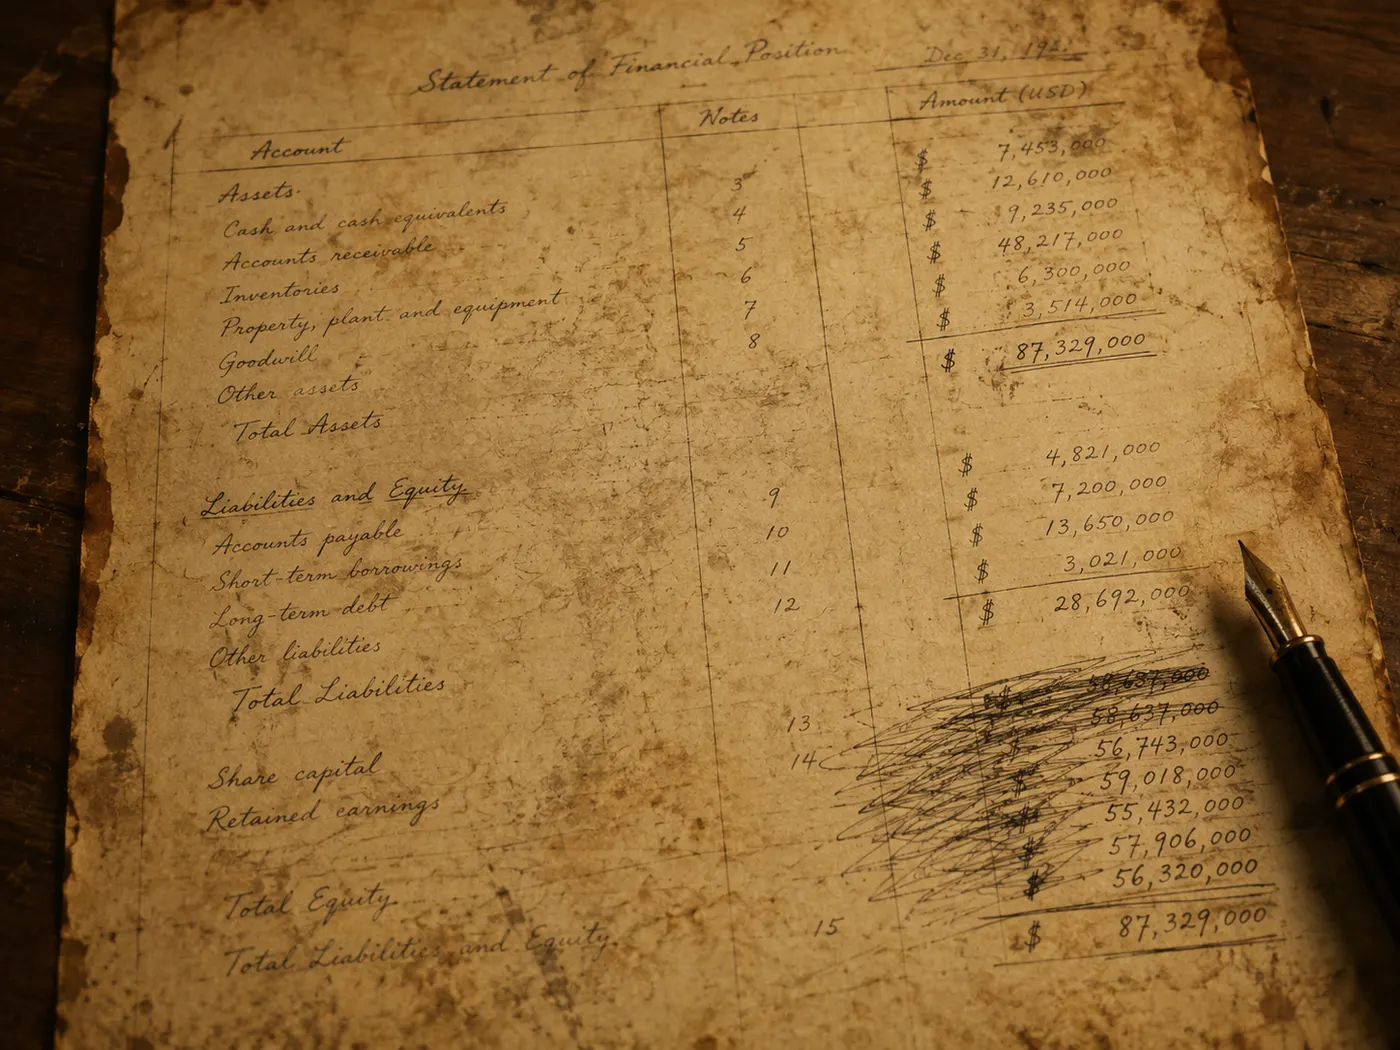 Statement of Financial Position Dec 31,
Account Notes Amount (USD)
Assets. $ 7,453,000
Cash and cash equivalents 3 $ 12,610,000
Accounts receivable 4 $ 9,235,000
Inventories 5 $ 48,217,000
Property, plant and equipment 6 $ 6,300,000
Goodwill 7 $ 3,514,000
Other assets 8 $ 87,329,000
Total Assets
Liabilities and Equity $ 4,821,000
Accounts payable 9 $ 7,200,000
Short-term borrowings 10 $ 13,650,000
Long-term debt 11 $ 3,021,000
Other liabilities 12 $ 28,692,000
Total Liabilities
$ 58,637,000
Share capital 13 58,637,000
Retained earnings 14 $ 56,743,000
$ 59,018,000
$ 55,432,000
$ 57,906,000
Total Equity $ 56,320,000
Total Liabilities and Equity 15 $ 87,329,000